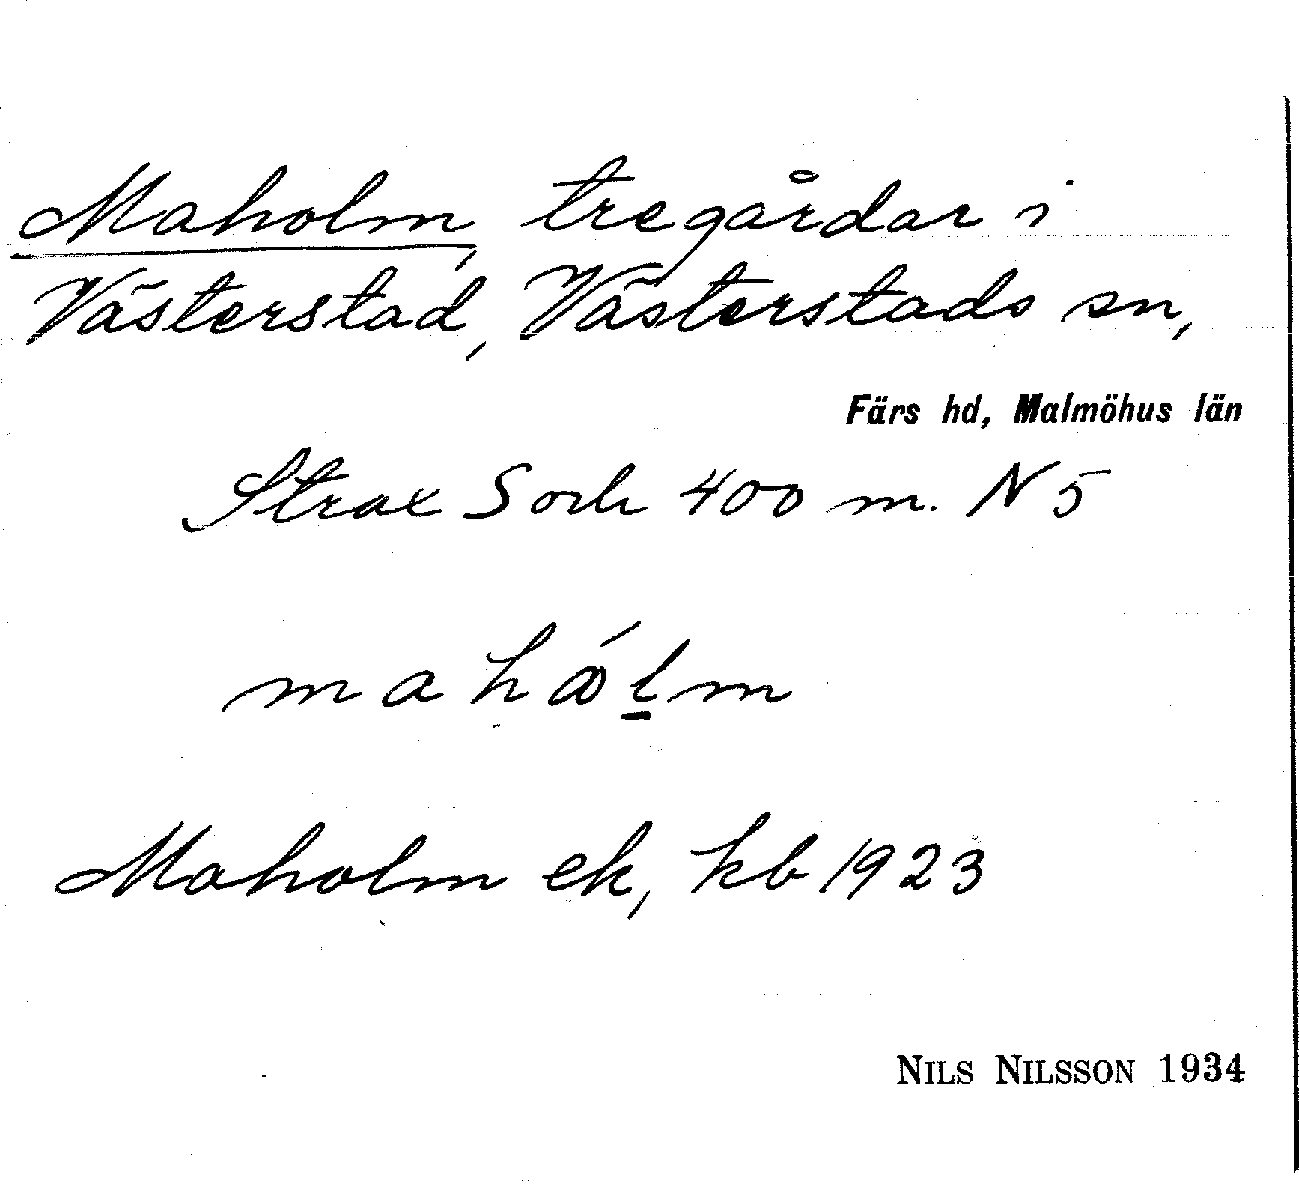 Maholm, tregårdar i
Västerstad, Västerstads sn,
Färs hd, Malmöhus län
Strax S och 400 m. N 5
mahólm
Maholm ek, kb 1923
NILS NILSSON 1934